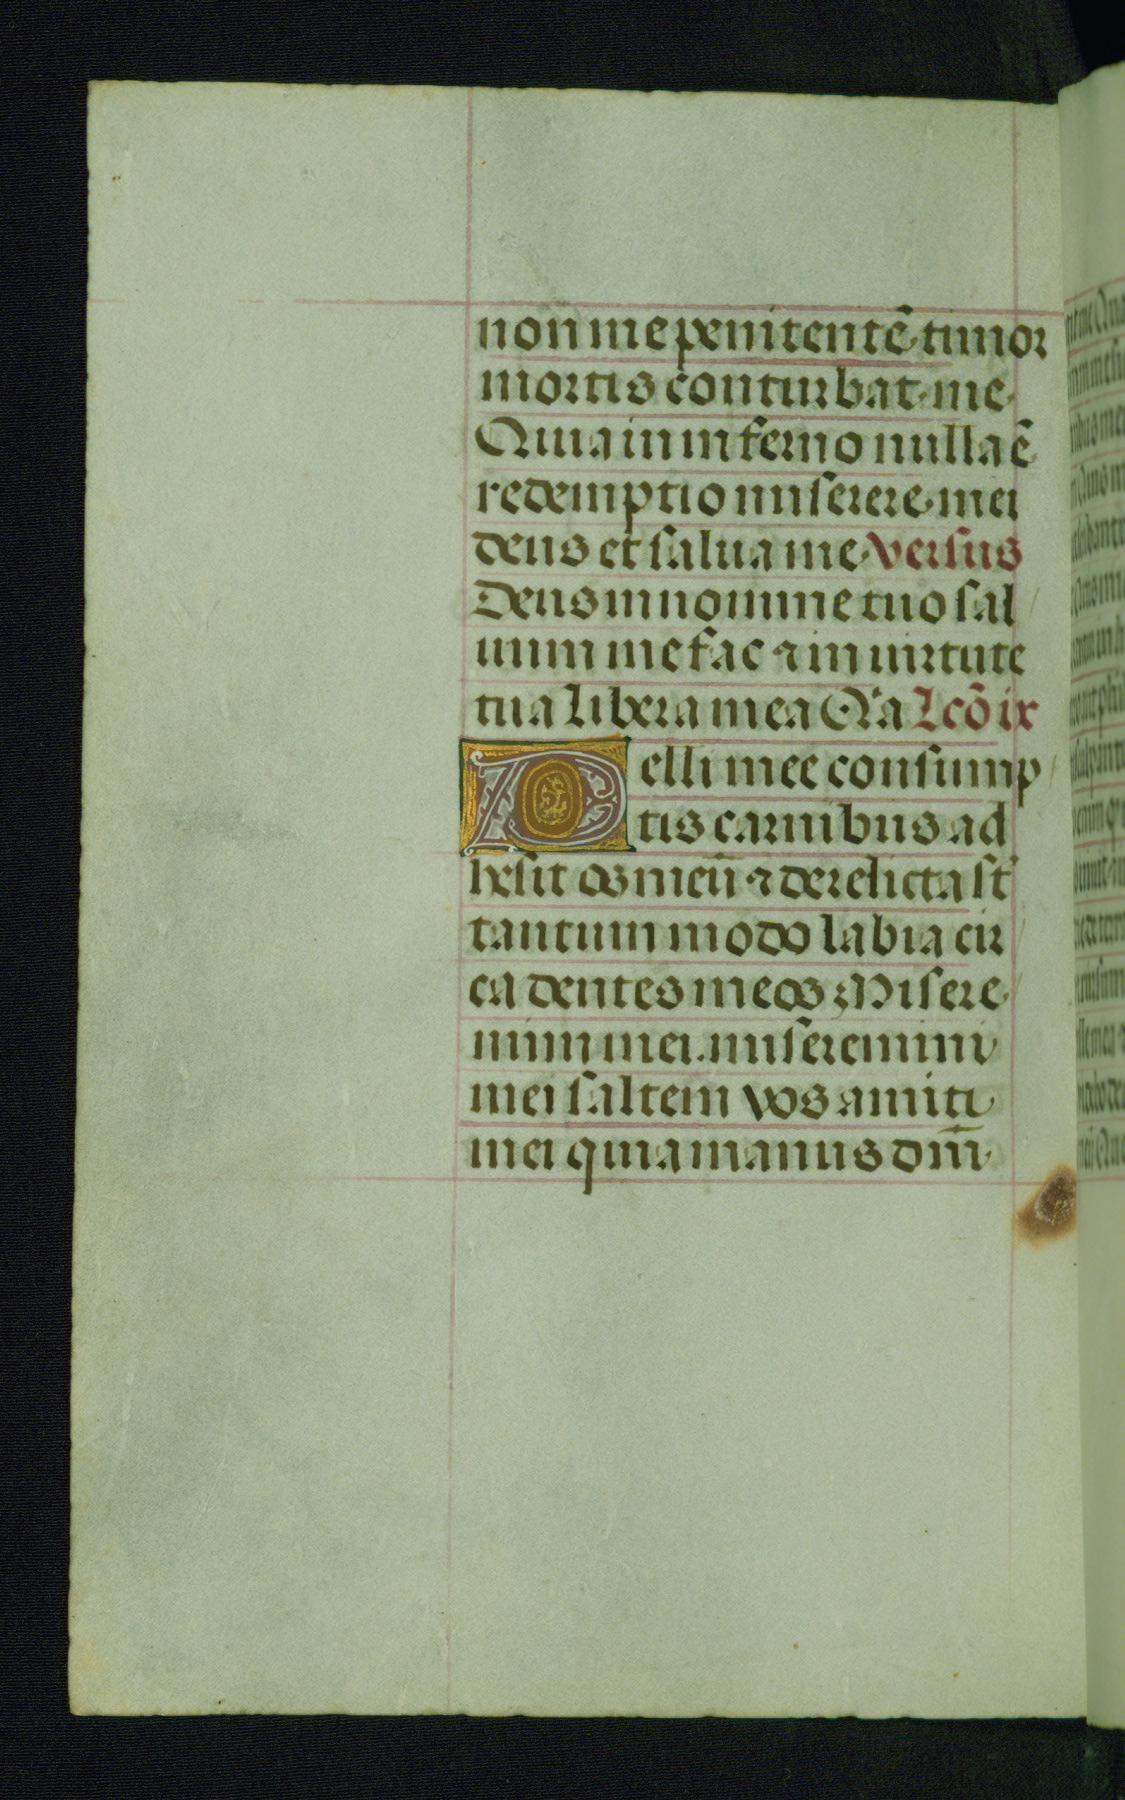 non me penitentē timor
mortis conturbat me
Quia in inferno nulla ē
redemptio miserere mei
deus et salua me versus
Deus in nomine tuo sal
uum me fac ⁊ in uirtute
tua libera mea Qīa Lcō ix
Pelli mee consump
tis carnibus ad
hesit os meū ⁊ derelicta st̄
tantum modo labia cir
ca dentes meos Misere
mini mei. miseremini
mei saltem vos amici
mei quia manus dn̄i